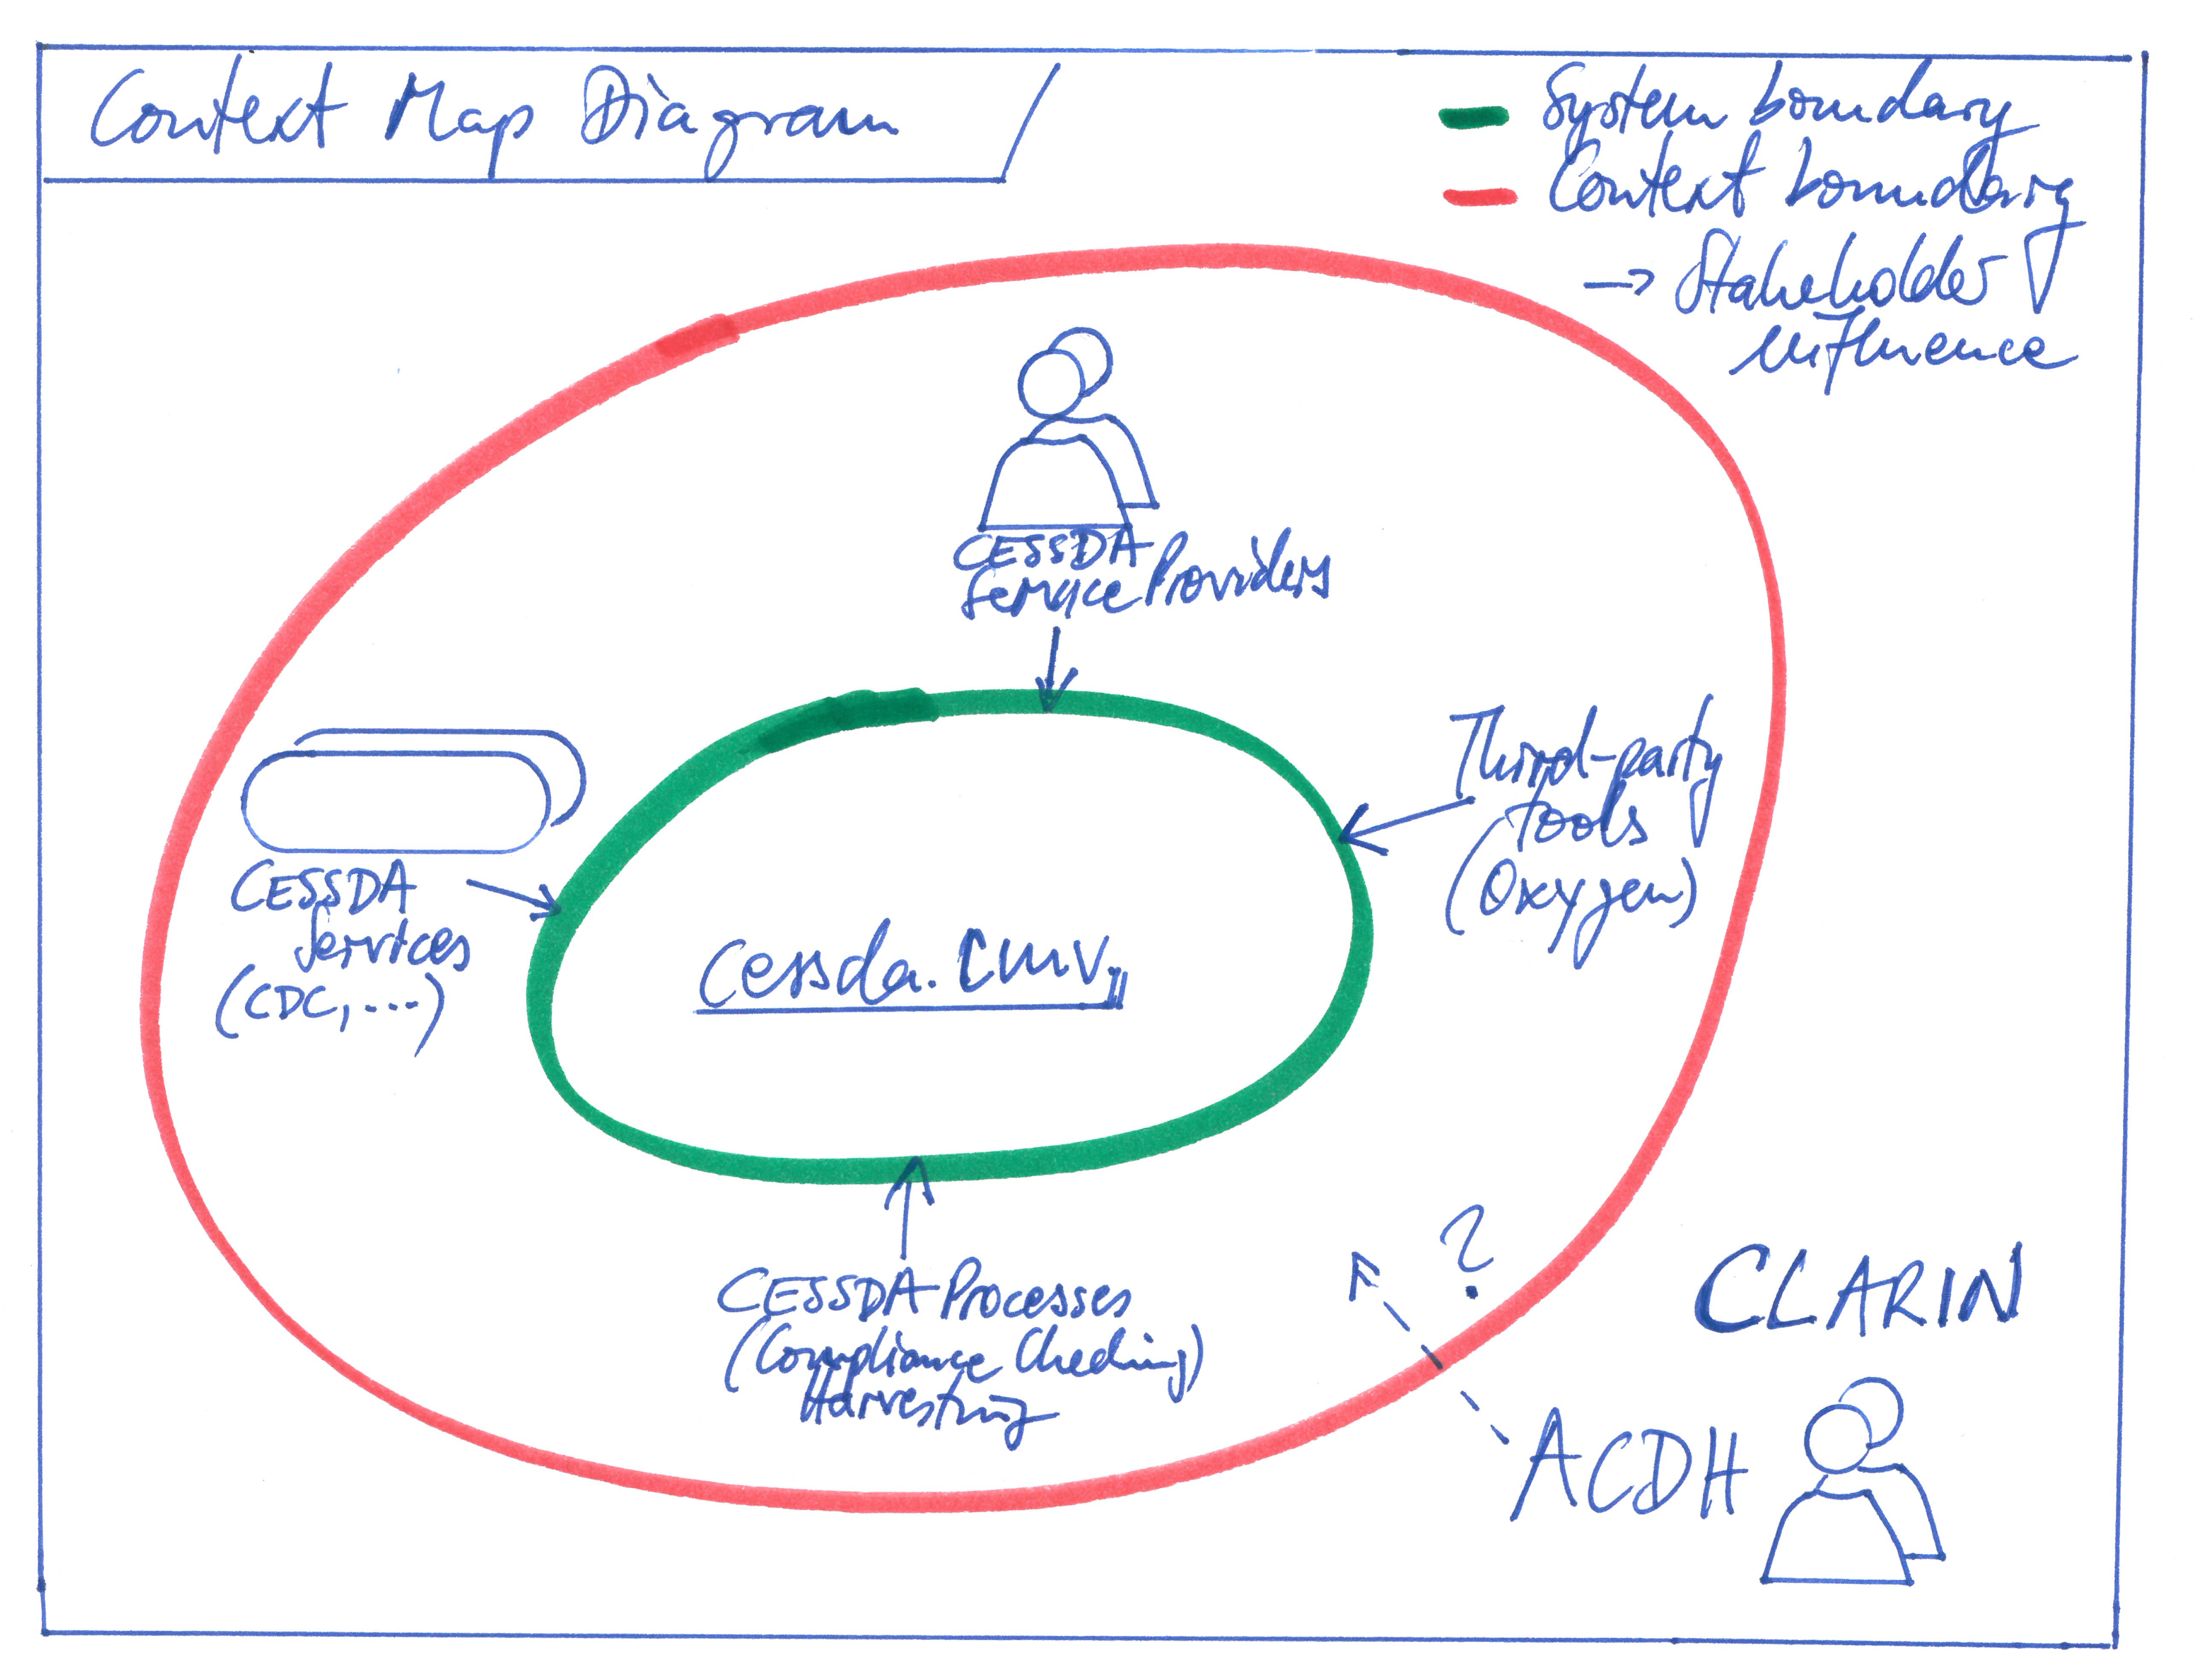 Context Map Diagram
System boundary
Context boundary
→ Stakeholder
influence
CESSDA
Service Providers
Third-party
tools
(Oxygen)
CESSDA
Services
(CDC, ...)
Cessda.CMV
CESSDA Processes
(Compliance Checking)
Harvesting
?
CLARIN
ACDH